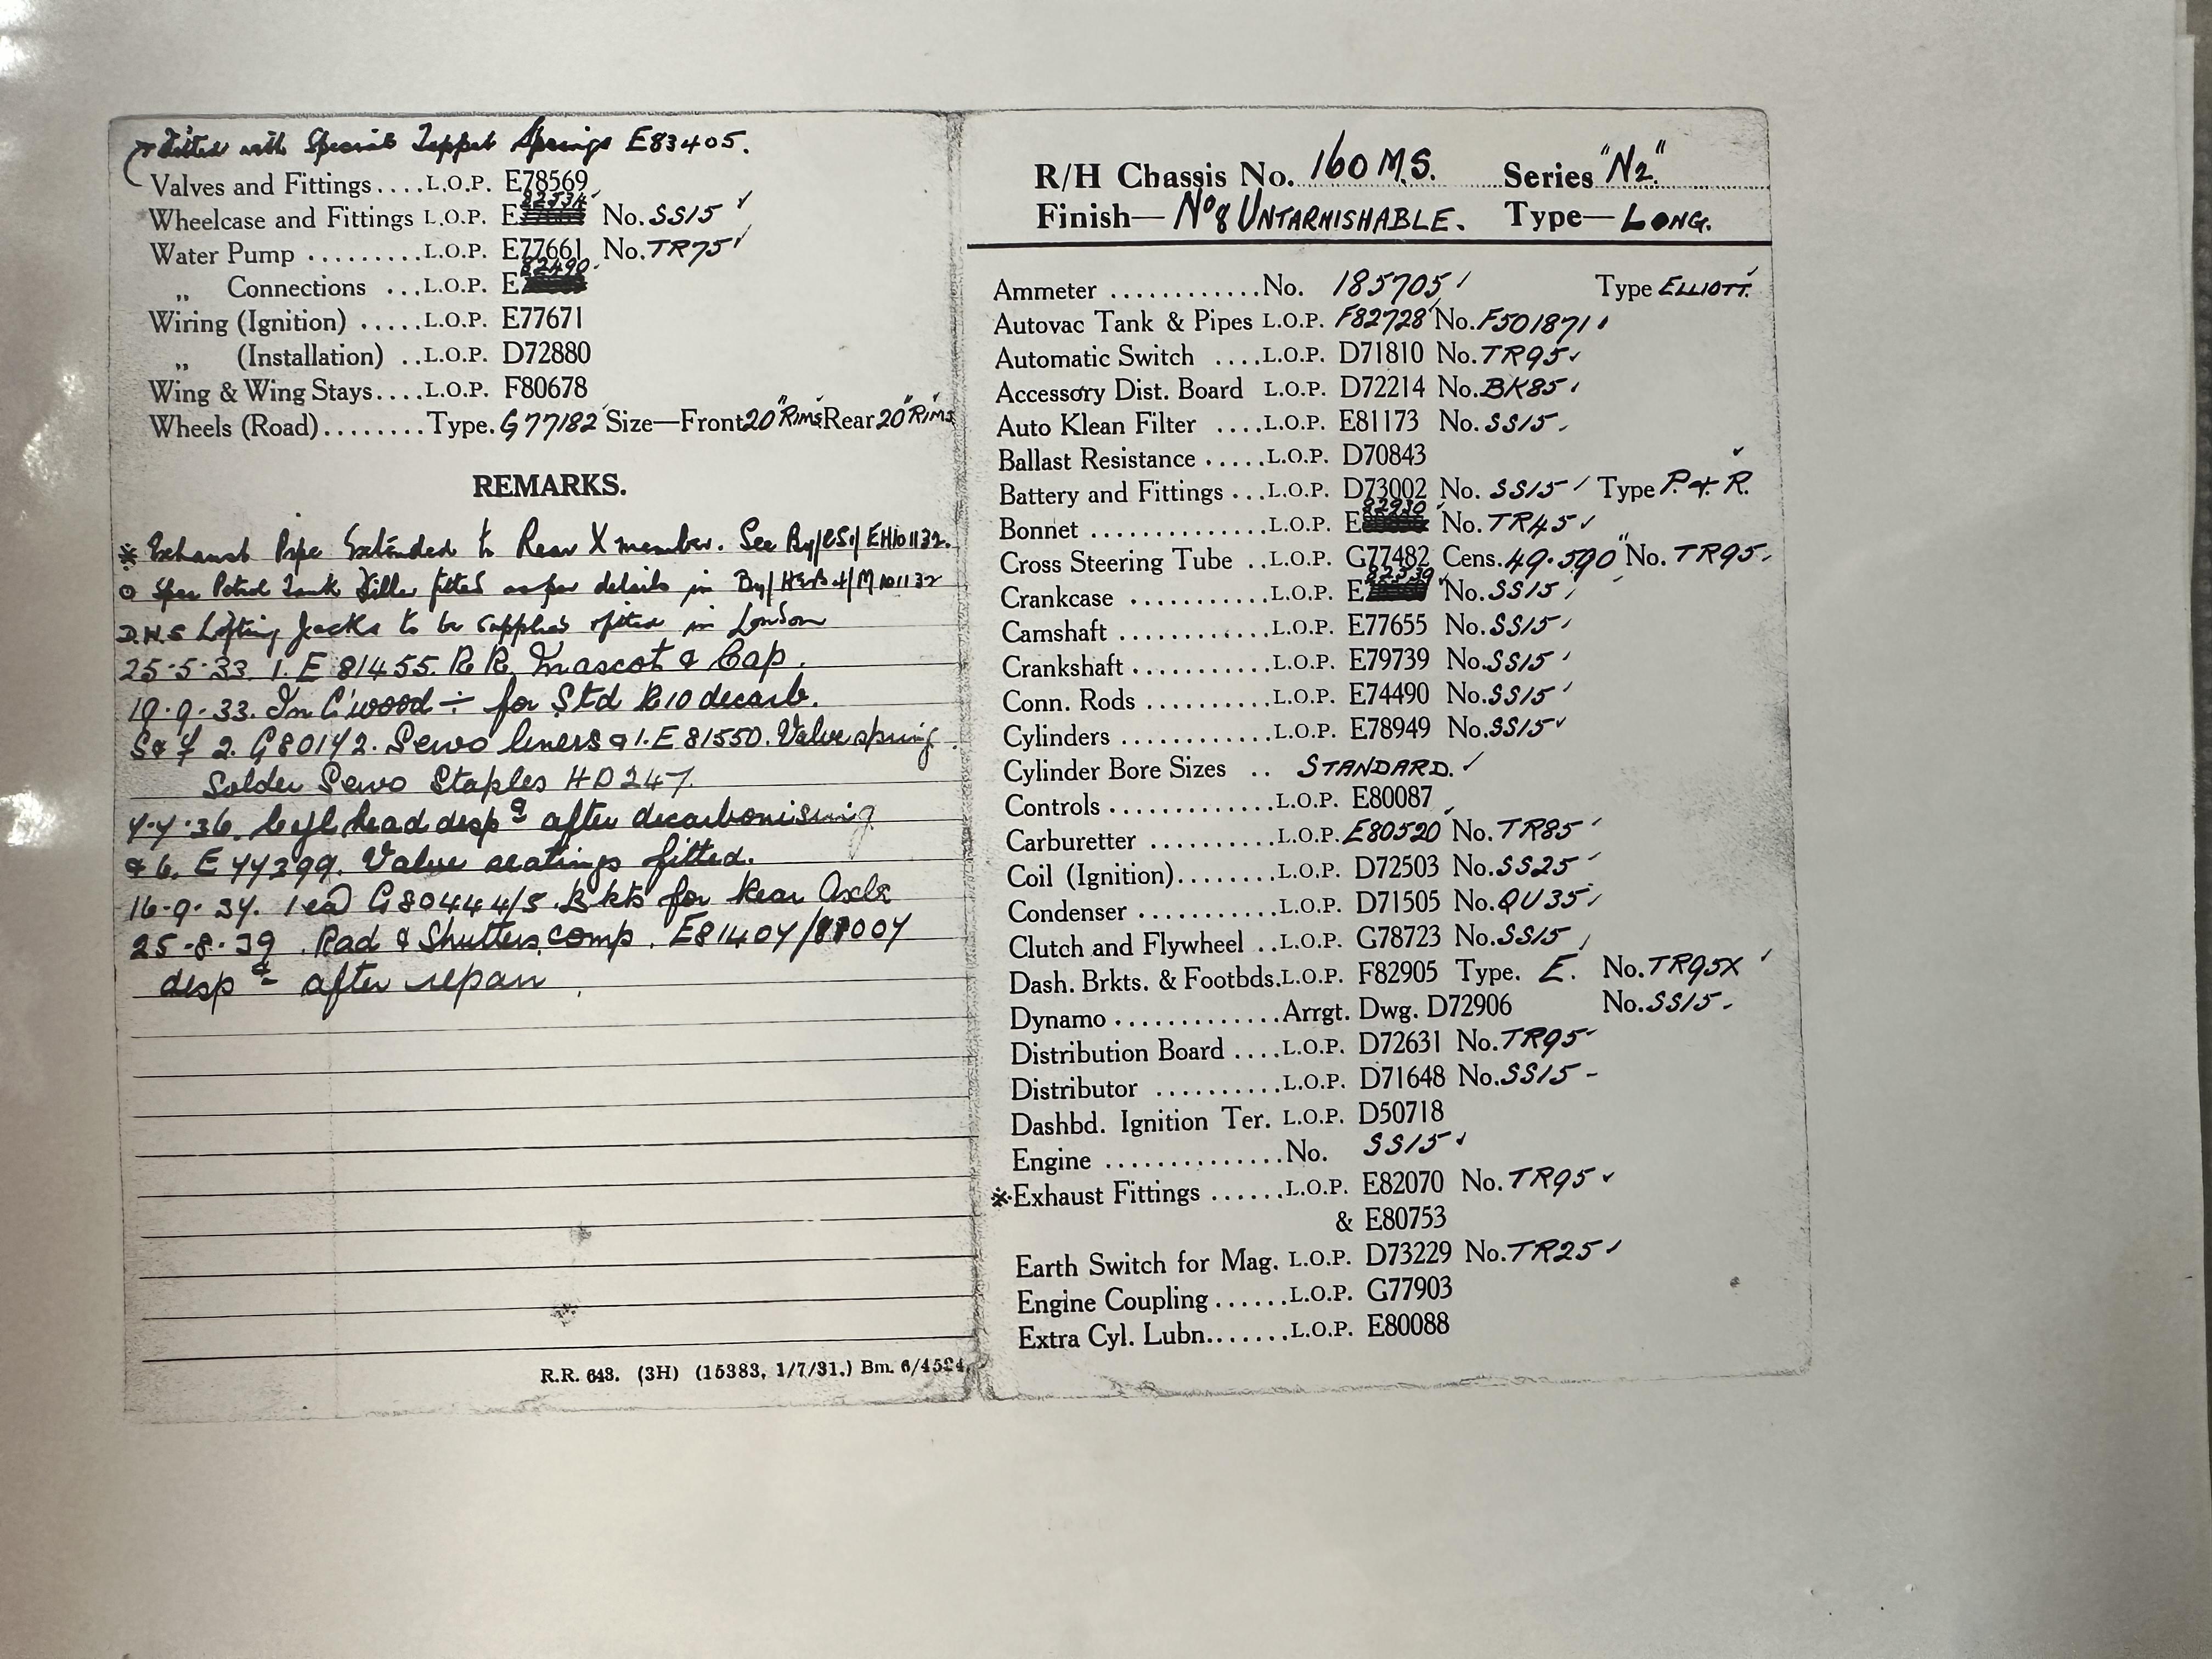 Fitted with Special Tappet Springs E83405.
Valves and Fittings....L.O.P. E78569
Wheelcase and Fittings L.O.P. E82534 No. SS15
Water Pump .........L.O.P. E77661 No. TR75
„ Connections ...L.O.P. E82490
Wiring (Ignition) .....L.O.P. E77671
„ (Installation) ..L.O.P. D72880
Wing & Wing Stays....L.O.P. F80678
Wheels (Road)........Type. G77182 Size—Front 20" Rims Rear 20" Rims
REMARKS.
※ Exhaust Pipe Extended to Rear X member. See By/ES1/EH101132.
o Spec Petrol Tank Filler fitted as per details in By/ /M101132
D.W.S Lifting Jacks to be supplied & fitted in London
25·5·33. 1. E 81455. R R. Mascot & Cap.
19·9·33. In C'wood ÷ for Std R10 decarb.
S & F 2. G80142. Servo liners & 1. E 81550. Valve spring.
Solder Servo Staples HD247.
4·4·36. Cyl head despd after decarbonising
& 6. E 44399. Valve seatings fitted.
16·9·37. 1 ea G80444/5 Bkts for Rear Axle
25·8·39. Rad & Shutters comp. E81407/ despd after repair
R.R. 643. (3H) (15383, 1/7/31.) Bm. 6/4524.
R/H Chassis No. 160 M.S. Series "N2."
Finish— No 8 UNTARNISHABLE. Type— LONG.
Ammeter ............No. 185705 Type ELLIOTT.
Autovac Tank & Pipes L.O.P. F82728 No. F501871
Automatic Switch ....L.O.P. D71810 No. TR95
Accessory Dist. Board L.O.P. D72214 No. BK85
Auto Klean Filter ....L.O.P. E81173 No. SS15
Ballast Resistance .....L.O.P. D70843
Battery and Fittings ...L.O.P. D73002 No. SS15 Type P. & R.
Bonnet ..............L.O.P. E82930 No. TR45
Cross Steering Tube ..L.O.P. G77482 Cens. 49·590" No. TR95
Crankcase ...........L.O.P. E82539 No. SS15
Camshaft ............L.O.P. E77655 No. SS15
Crankshaft ...........L.O.P. E79739 No. SS15
Conn. Rods ..........L.O.P. E74490 No. SS15
Cylinders ............L.O.P. E78949 No. SS15
Cylinder Bore Sizes .. STANDARD.
Controls .............L.O.P. E80087
Carburetter ..........L.O.P. E80520 No. TR85
Coil (Ignition)........L.O.P. D72503 No. SS25
Condenser ...........L.O.P. D71505 No. QU35
Clutch and Flywheel ..L.O.P. G78723 No. SS15
Dash. Brkts. & Footbds. L.O.P. F82905 Type. E. No. TR95X
Dynamo .............Arrgt. Dwg. D72906 No. SS15
Distribution Board ....L.O.P. D72631 No. TR95
Distributor ..........L.O.P. D71648 No. SS15
Dashbd. Ignition Ter. L.O.P. D50718
Engine ..............No. SS15
※Exhaust Fittings ......L.O.P. E82070 No. TR95
& E80753
Earth Switch for Mag. L.O.P. D73229 No. TR25
Engine Coupling ......L.O.P. G77903
Extra Cyl. Lubn.......L.O.P. E80088